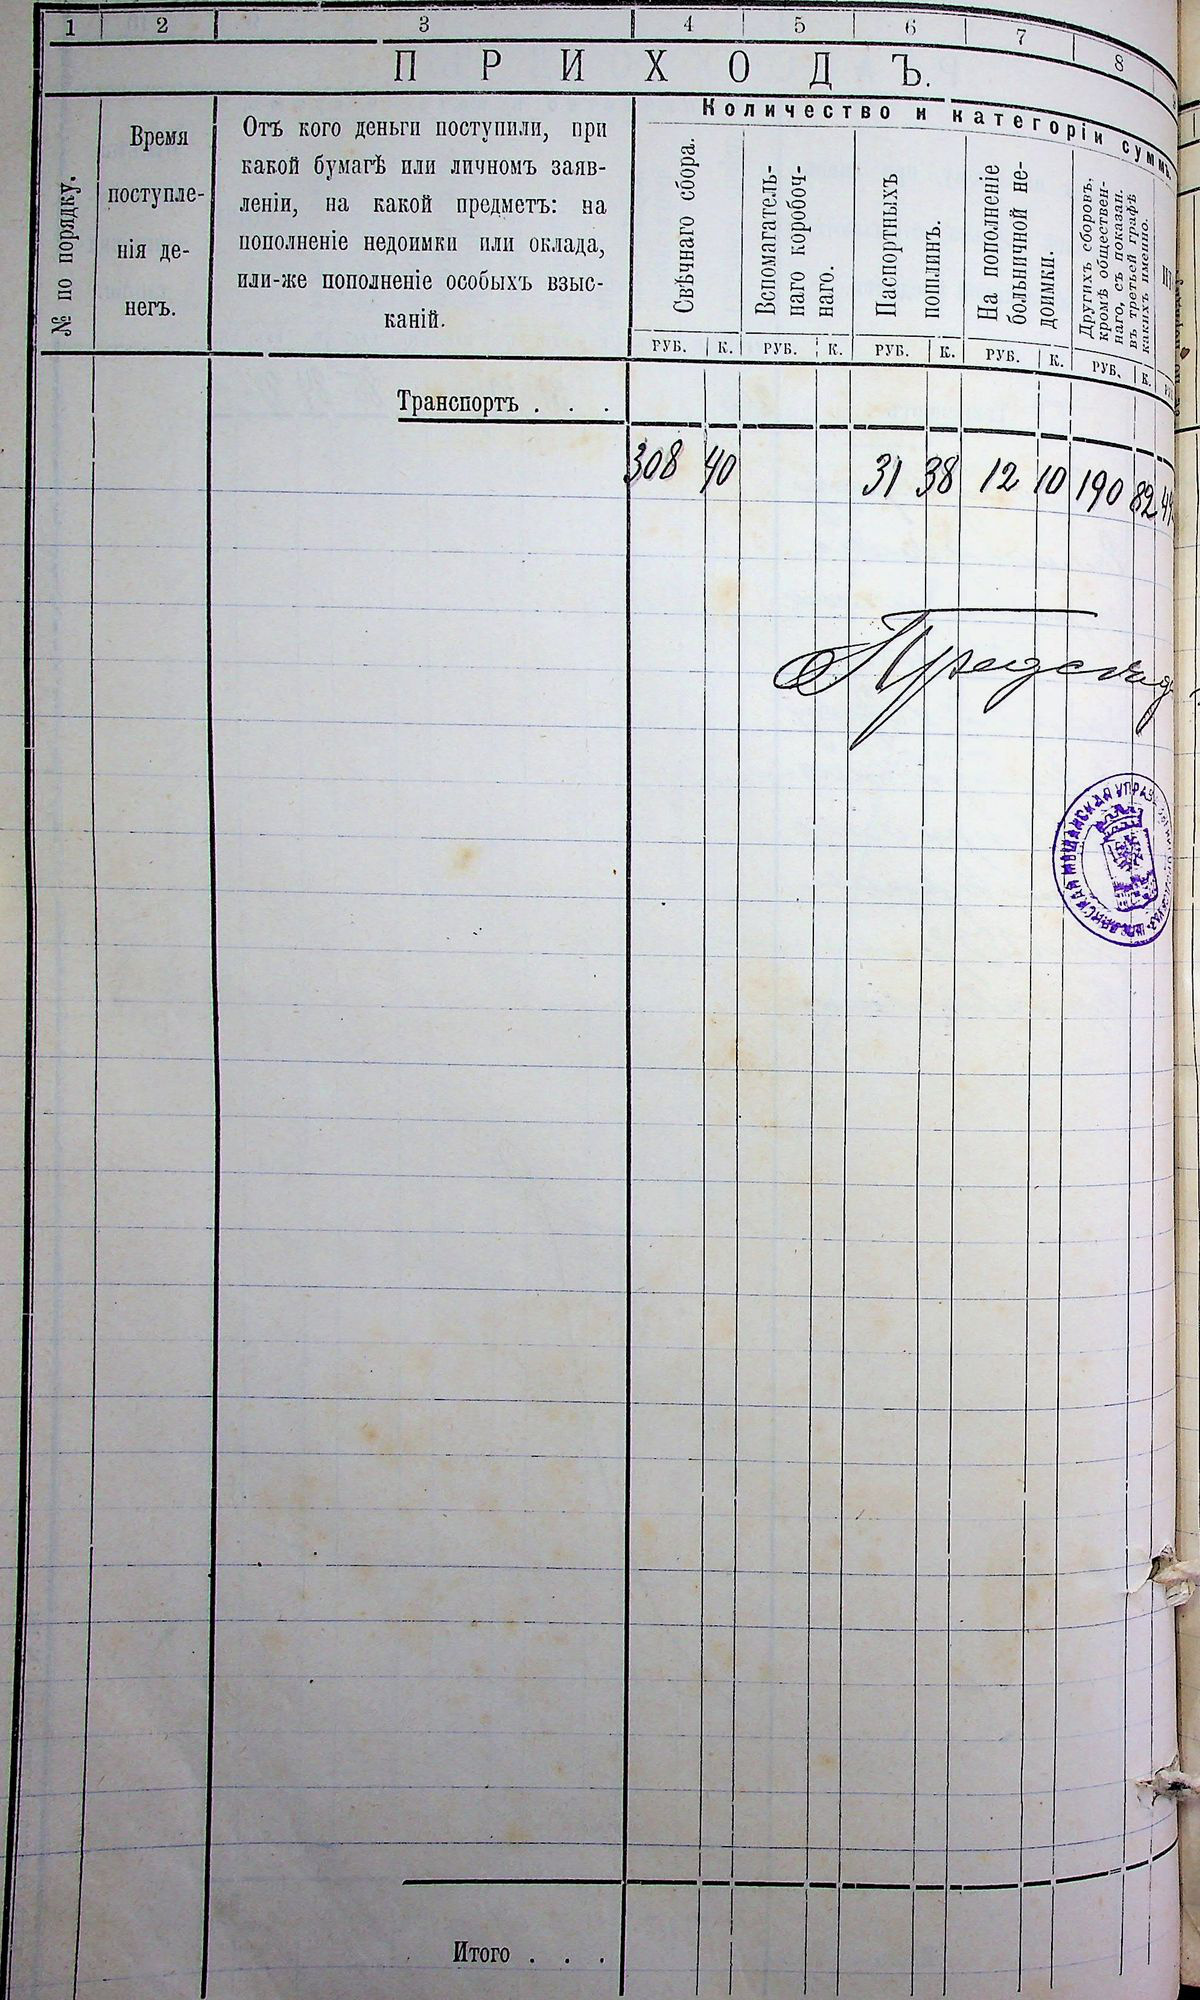 1 2 3 4 5 6 7 8
ПРИХОДЪ.
Количество и категоріи суммъ.
№ по порядку.
Время
поступле-
нія де-
негъ.
Отъ кого деньги поступили, при
какой бумагѣ или личномъ заяв-
леніи, на какой предметъ: на
пополненіе недоимки или оклада,
или-же пополненіе особыхъ взыс-
каній.
Свѣчнаго сбора.
Вспомагатель-
наго коробоч-
наго.
Паспортныхъ
пошлинъ.
На пополненіе
больничной не-
доимки.
Другихъ сборовъ,
кромѣ обществен-
наго, съ показан.
въ третьей графѣ
какихъ именно.
РУБ. К. РУБ. К. РУБ. К. РУБ. К. РУБ. К.
Транспортъ . . .
308 40 31 38 12 10 190 82
МѢЩАНСКАЯ УПРАВ
Итого . . .